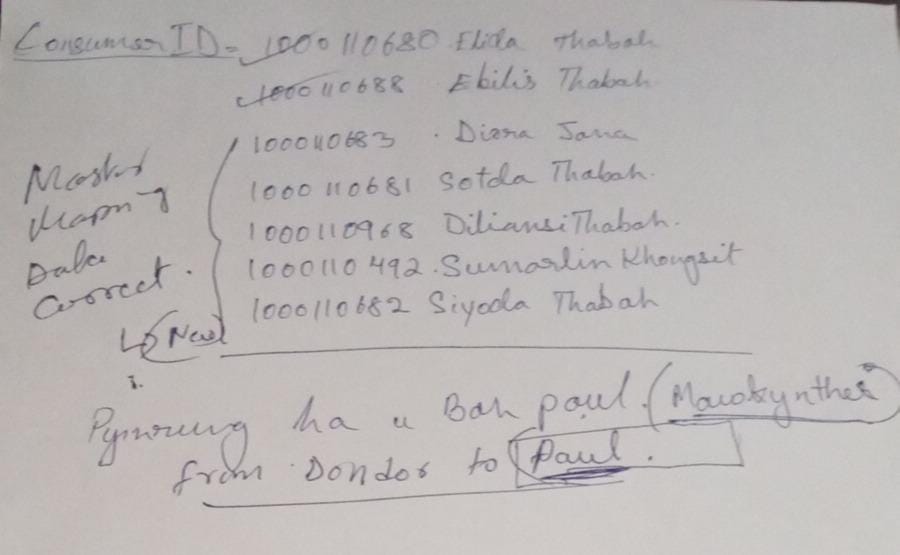 Consumer ID = 1000110680 Elida Thabah
1000110688 Ebilis Thabah
100040683 . Diana Jana
1000110681 Sotda Thabah.
1000110968 Diliansi Thabah.
1000110492 . Sumarlin Khongsit
1000110682 Siyoda Thabah
Master
Data
Correct.
New
Pynrung ha u Bah paul. (Mawkynthei)
from Dondor to Paul.